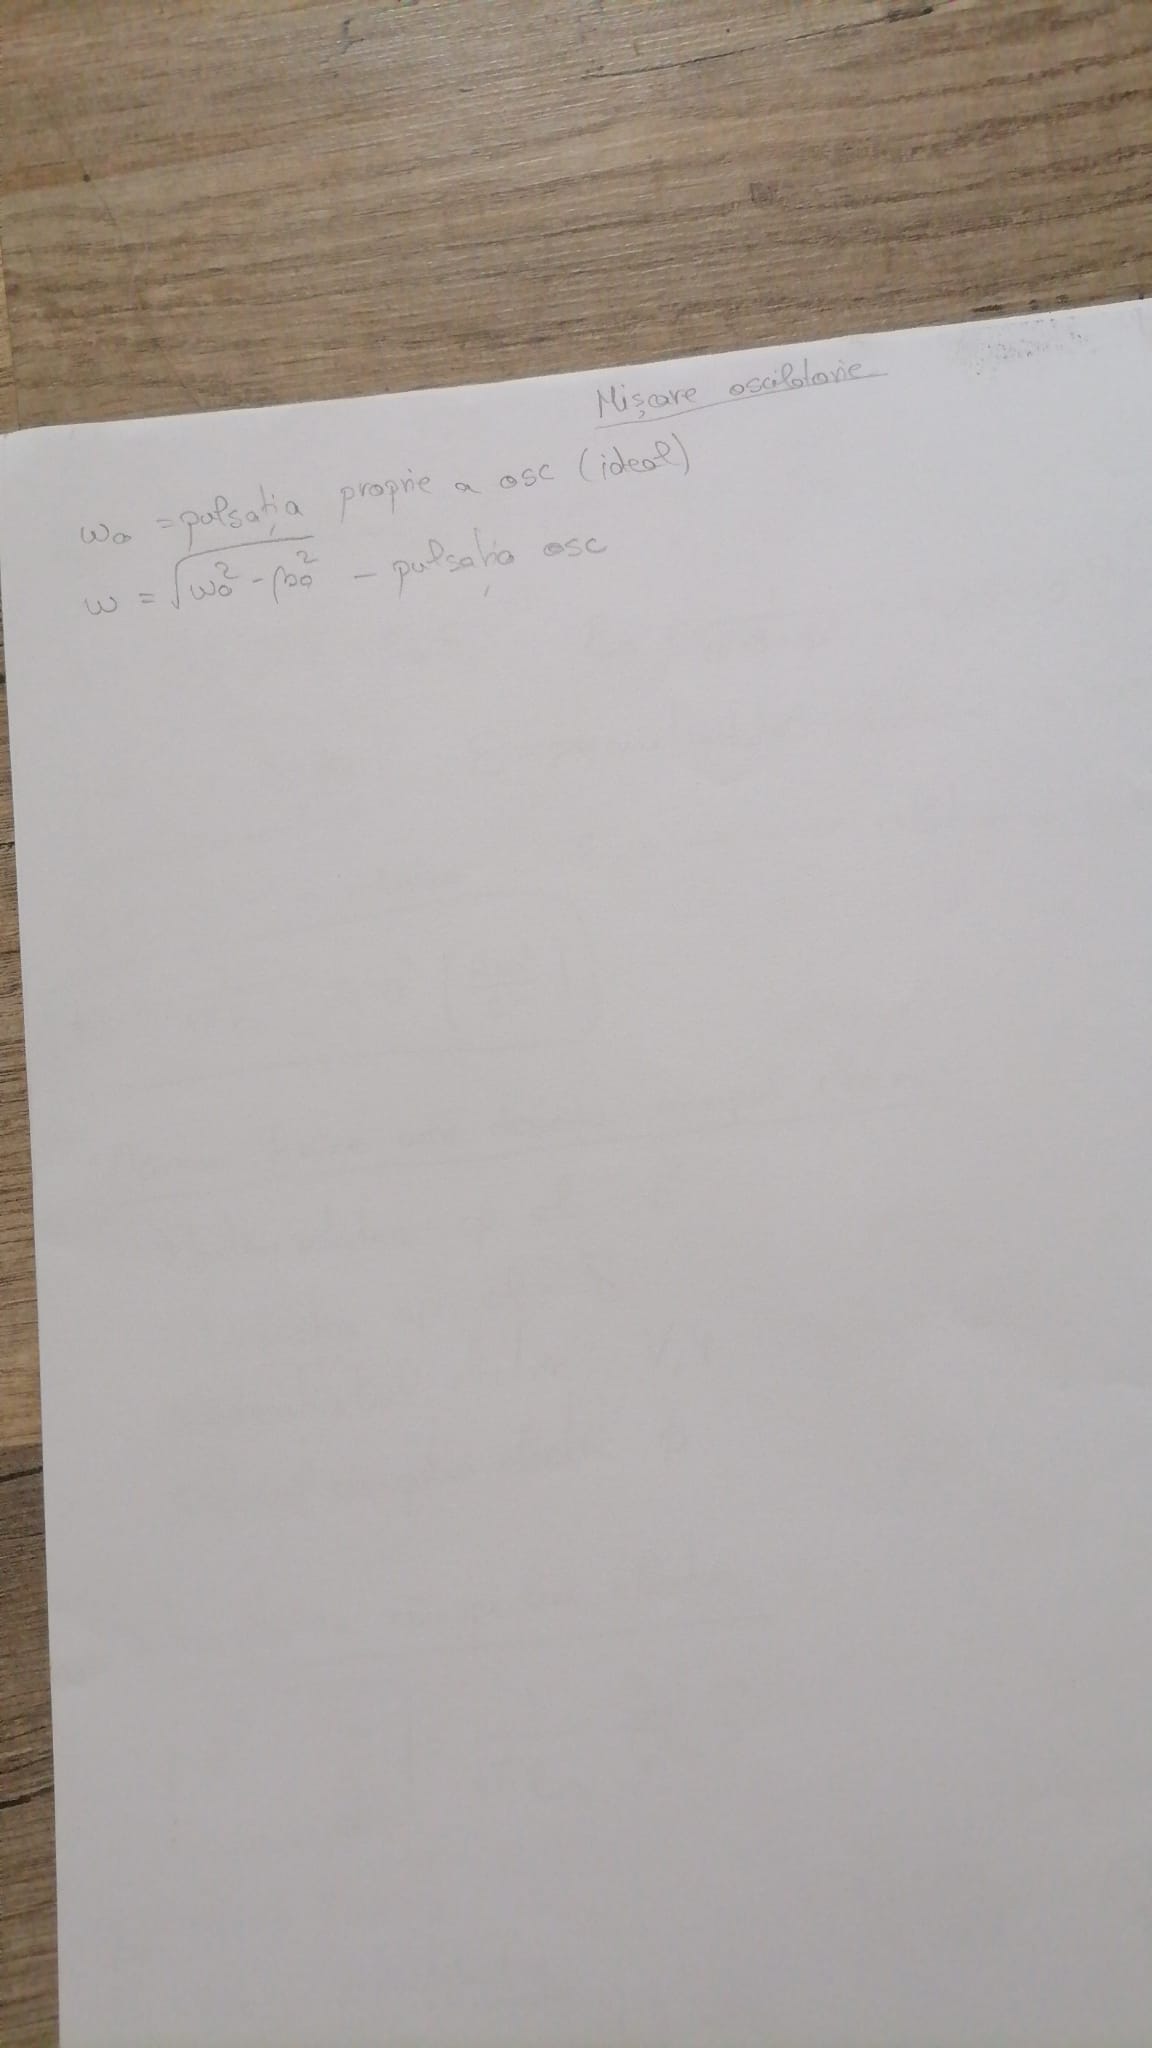 Mișcare oscilatorie
ω₀ = pulsația proprie a osc (ideal)
ω = √(ω₀² - β₀²) - pulsația osc